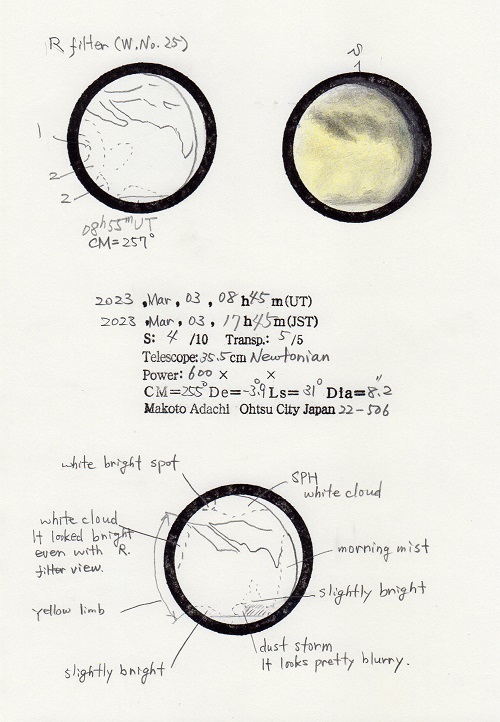 R filter (W.No.25)
1
2
2
08h55mUT
CM=257°
2023 ,Mar, 03 , 08 h45 m(UT)
2023 ,Mar, 03 , 17 h45 m(JST)
S: 4 /10 Transp.: 5 /5
Telescope: 35.5cm Newtonian
Power: 600 × ×
CM=255° De=-3.9° Ls= 31° Dia=8.2"
Makoto Adachi Ohtsu City Japan 22-506
white bright spot
SPH
white cloud
white cloud
It looked bright
even with R.
filter view.
morning mist
slightly bright
yellow limb
dust storm
It looks pretty blurry.
slightly bright